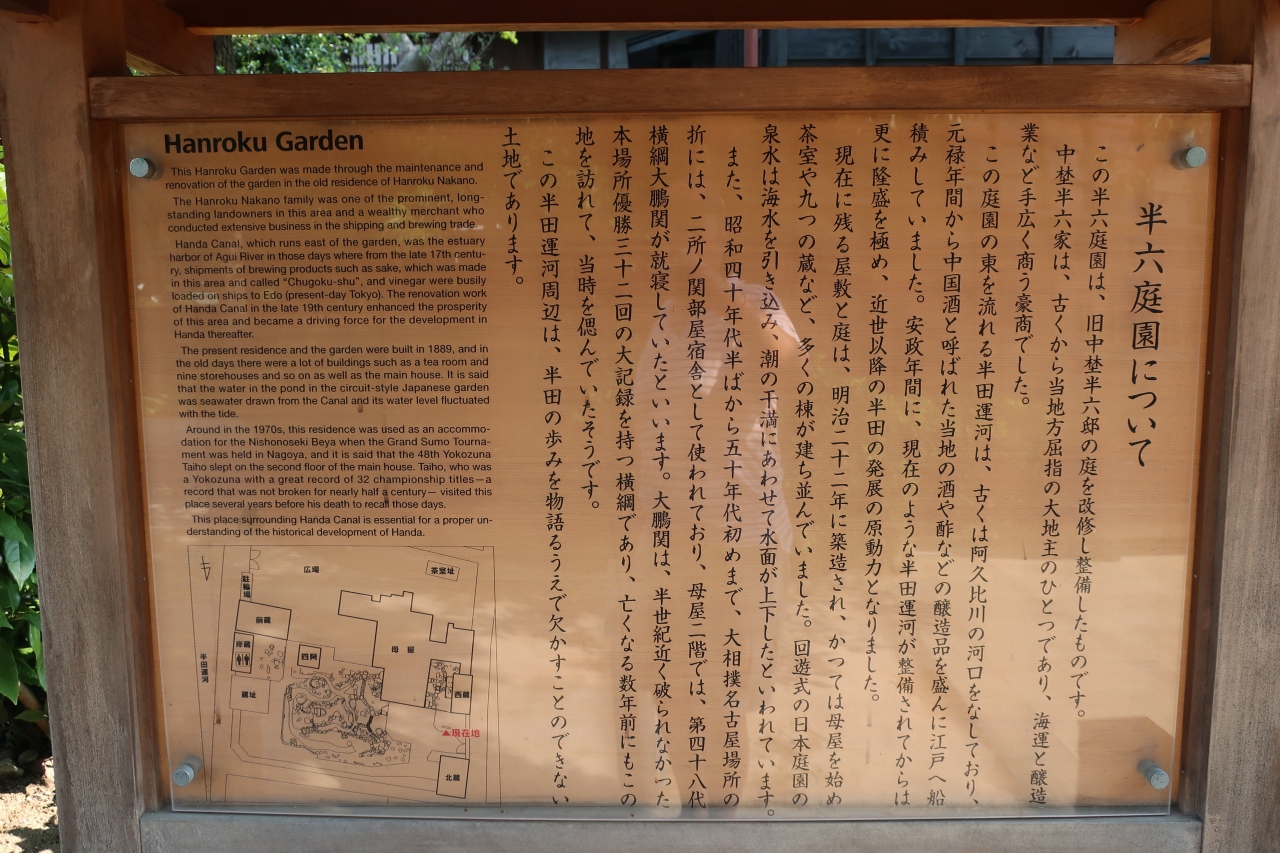 半六庭園について
この半六庭園は、旧中埜半六邸の庭を改修し整備したものです。
中埜半六家は、古くから当地方屈指の大地主のひとつであり、海運と醸造
業など手広く商う豪商でした。
この庭園の東を流れる半田運河は、古くは阿久比川の河口をなしており、
元禄年間から中国酒と呼ばれた当地の酒や酢などの醸造品を盛んに江戸へ船
積みしていました。安政年間に、現在のような半田運河が整備されてからは
更に隆盛を極め、近世以降の半田の発展の原動力となりました。
現在に残る屋敷と庭は、明治二十二年に築造され、かつては母屋を始め
茶室や九つの蔵など、多くの棟が建ち並んでいました。回遊式の日本庭園の
泉水は海水を引き込み、潮の干満にあわせて水面が上下したといわれています。
また、昭和四十年代半ばから五十年代初めまで、大相撲名古屋場所の
折には、二所ノ関部屋宿舎として使われており、母屋二階では、第四十八代
横綱大鵬関が就寝していたといいます。大鵬関は、半世紀近く破られなかった
本場所優勝三十二回の大記録を持つ横綱であり、亡くなる数年前にもこの
地を訪れて、当時を偲んでいたそうです。
この半田運河周辺は、半田の歩みを物語るうえで欠かすことのできない
土地であります。
Hanroku Garden
This Hanroku Garden was made through the maintenance and
renovation of the garden in the old residence of Hanroku Nakano.
The Hanroku Nakano family was one of the prominent, long-
standing landowners in this area and a wealthy merchant who
conducted extensive business in the shipping and brewing trade.
Handa Canal, which runs east of the garden, was the estuary
harbor of Agui River in those days where from the late 17th centu-
ry, shipments of brewing products such as sake, which was made
in this area and called “Chugoku-shu”, and vinegar were busily
loaded on ships to Edo (present-day Tokyo). The renovation work
of Handa Canal in the late 19th century enhanced the prosperity
of this area and became a driving force for the development in
Handa thereafter.
The present residence and the garden were built in 1889, and in
the old days there were a lot of buildings such as a tea room and
nine storehouses and so on as well as the main house. It is said
that the water in the pond in the circuit-style Japanese garden
was seawater drawn from the Canal and its water level fluctuated
with the tide.
Around in the 1970s, this residence was used as an accommo-
dation for the Nishonoseki Beya when the Grand Sumo Tourna-
ment was held in Nagoya, and it is said that the 48th Yokozuna
Taiho slept on the second floor of the main house. Taiho, who was
a Yokozuna with a great record of 32 championship titles—a
record that was not broken for nearly half a century— visited this
place several years before his death to recall those days.
This place surrounding Handa Canal is essential for a proper un-
derstanding of the historical development of Handa.
広場
茶室址
駐輪場
前蔵
母屋
四阿
半田運河
蔵址
西蔵
▲現在地
北蔵